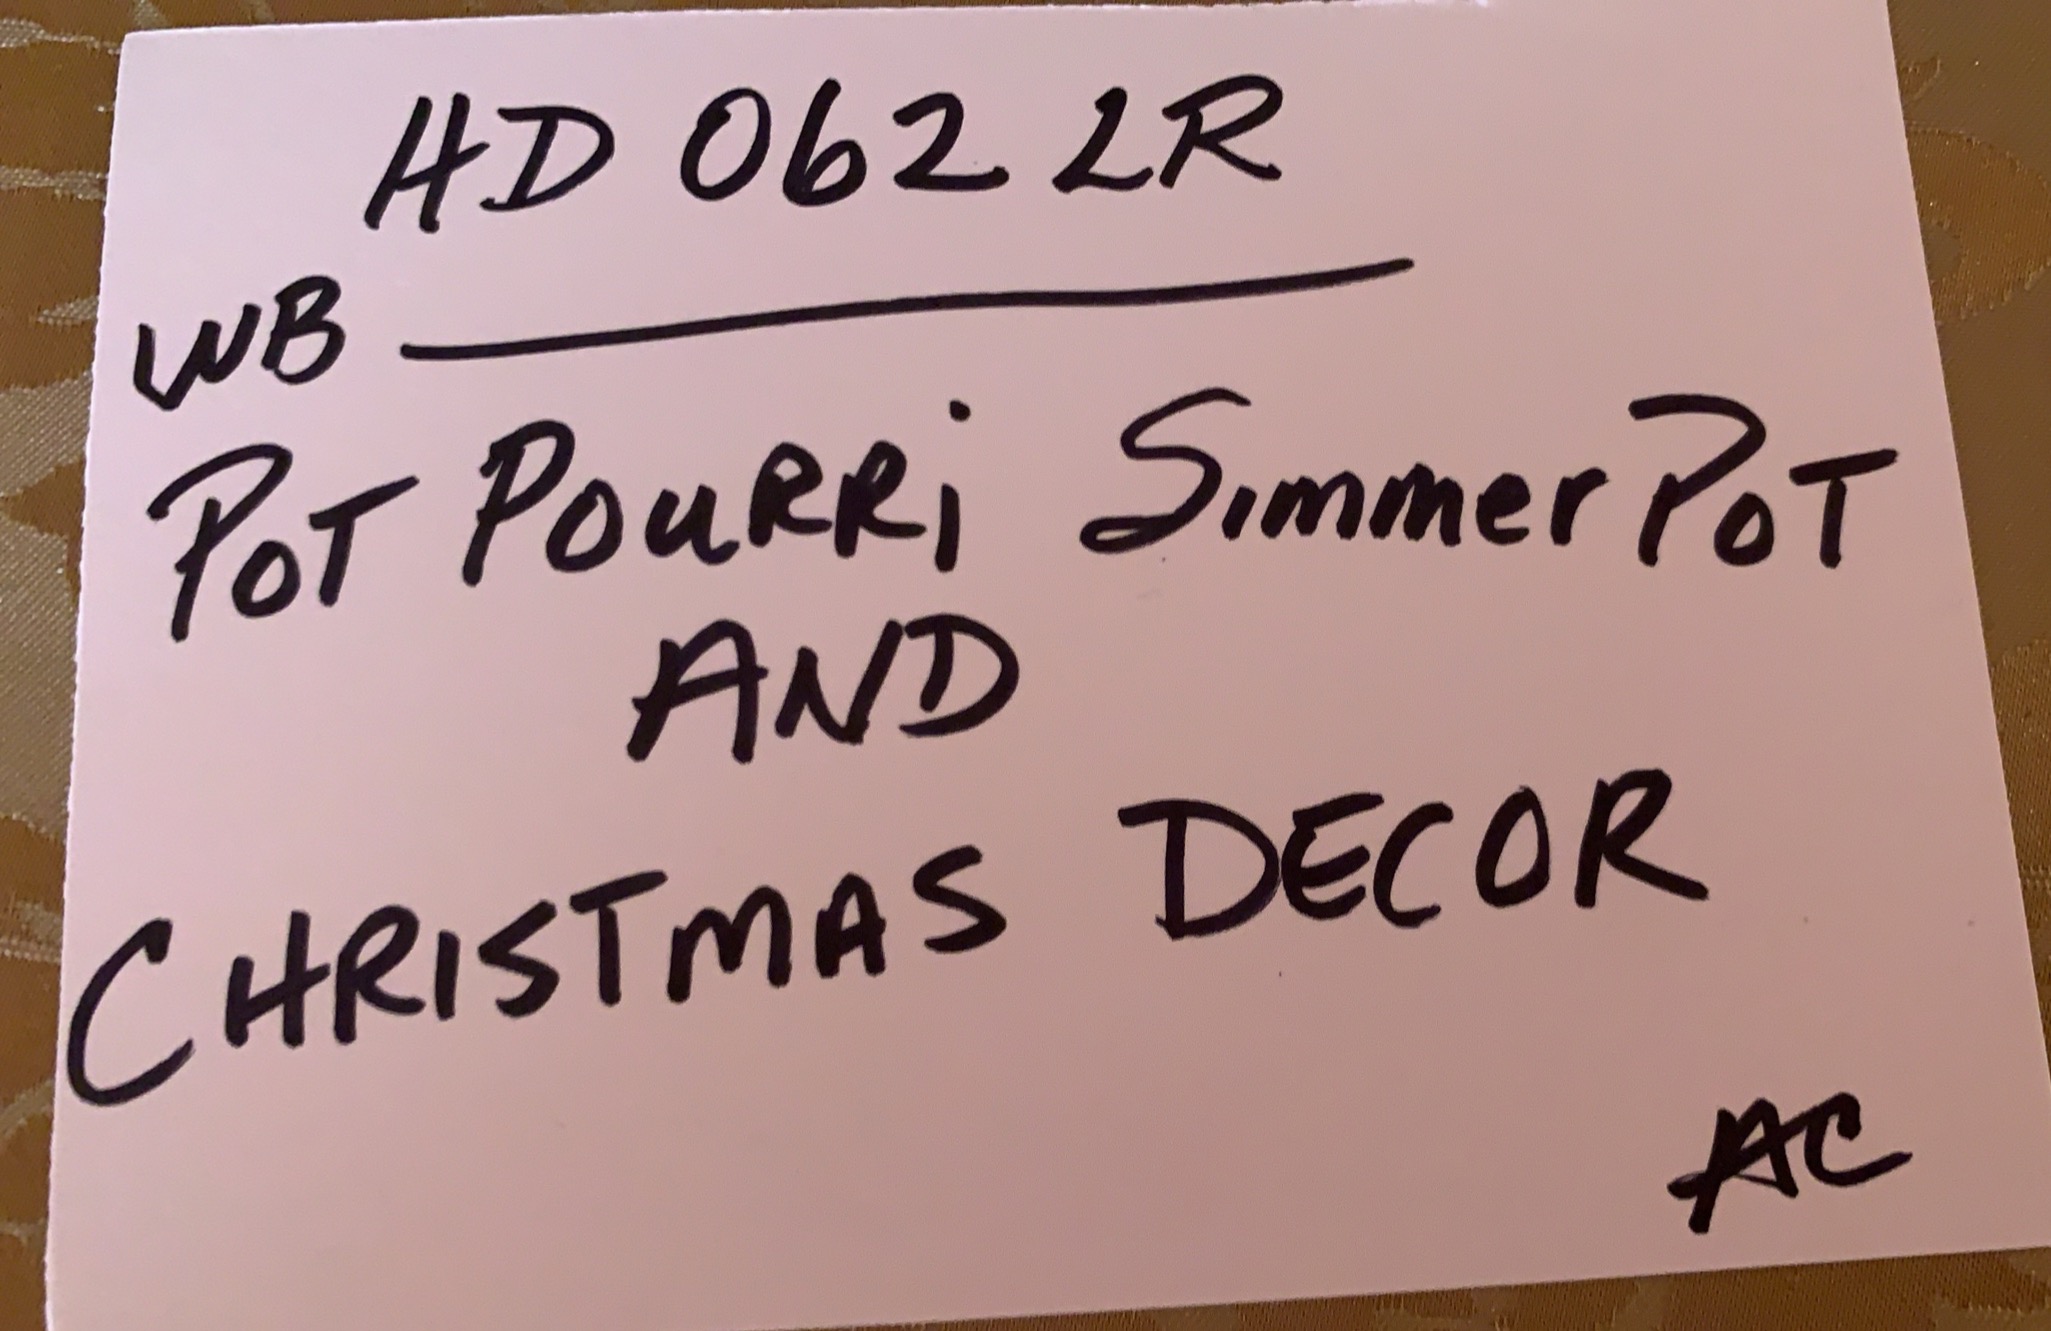 HD 062 LR
WB
POT POURRi SimmerPOT
AND
CHRISTMAS DECOR
AC